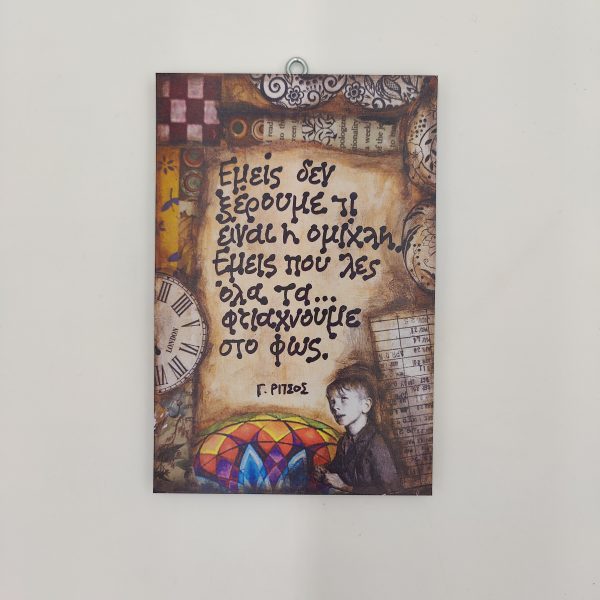 Εμείς δεν
ξέρουμε τι
είναι η ομίχλη.
Εμείς που λες
όλα τα...
φτιάχνουμε
στο φως.
Γ. ΡΙΤΣΟΣ
LONDON